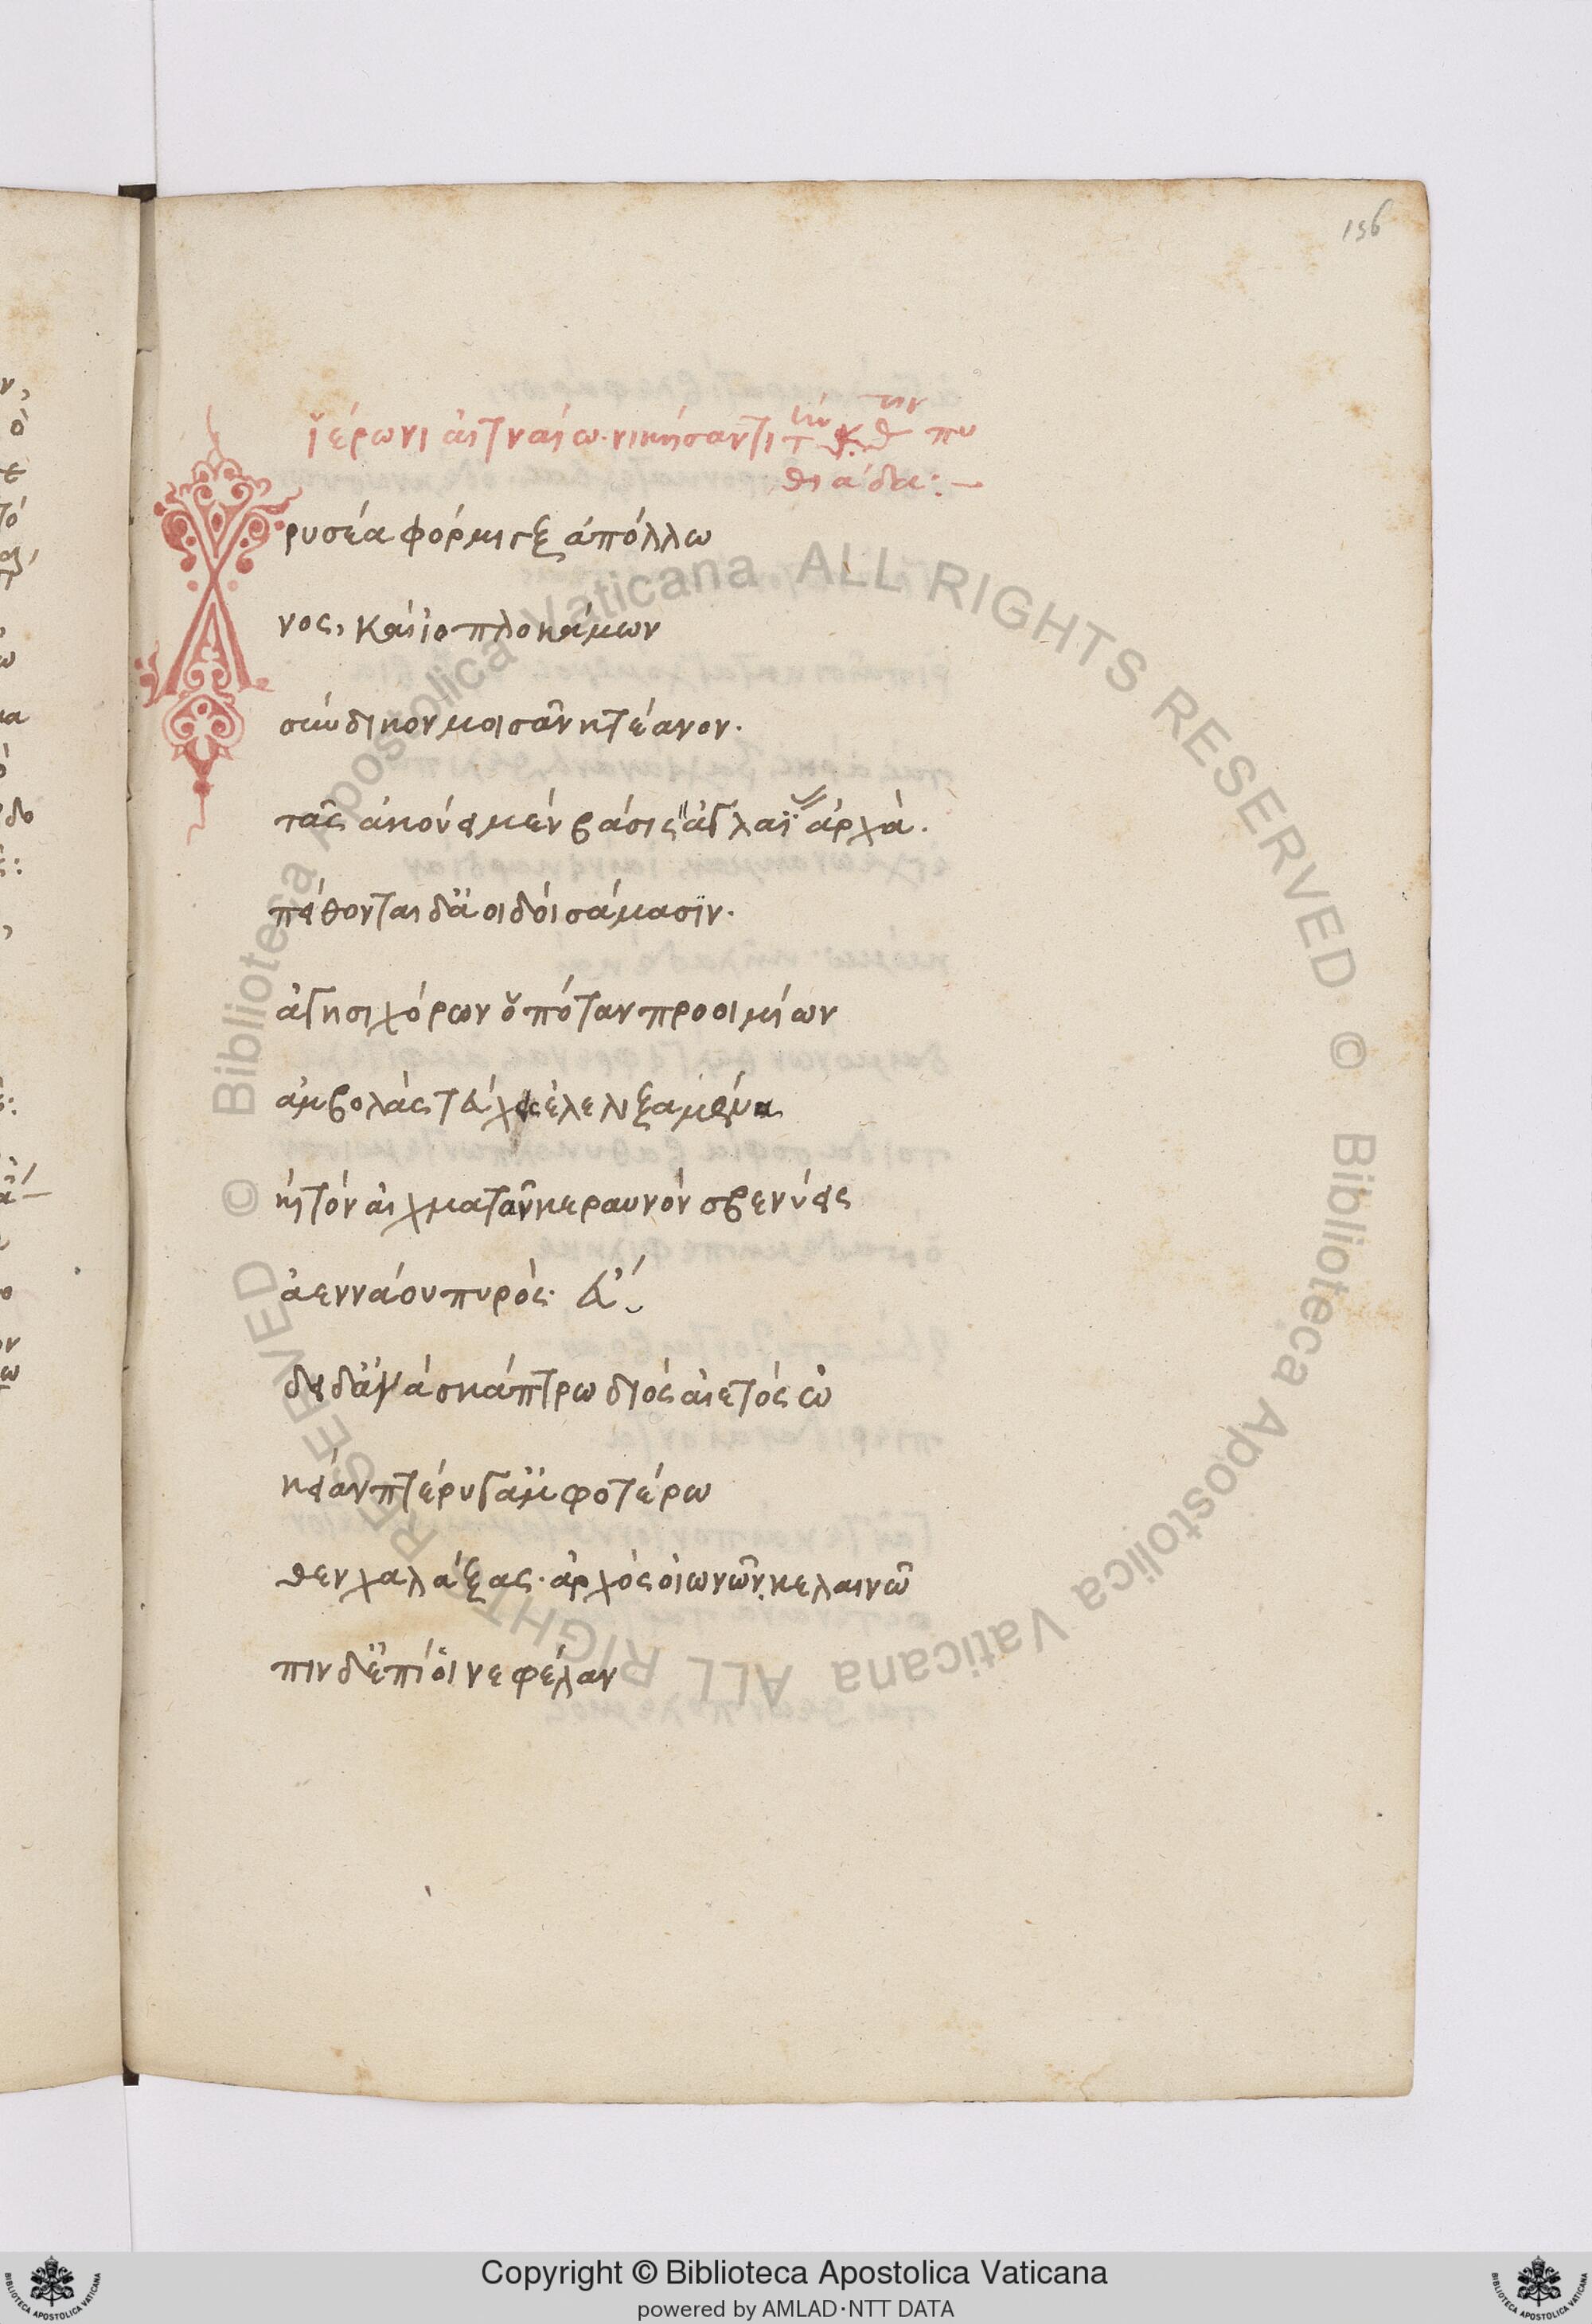 156
ἱέρωνι αἰτναίω· νικήσαντι τὴν κθ την πυ
θιάδα:—
Χρυσέα φόρμιγξ ἀπόλλω
νος, καὶ ἰοπλοκάμων
σύνδικον μοισᾶν κτέανον.
τᾶς ἀκούει μὲν βάσις ἀγλαΐ ἀρχά.
πείθονται δ' ἀοιδοὶ σάμασιν.
ἁγησιχόρων ὁπόταν προοιμίων
ἀμβολὰς τεύχεις ἐλελιζαμένα
καὶ τὸν αἰχματὰν κεραυνὸν σβεννύεις
ἀεννάου πυρός. εὕ
δει δ' ἀνὰ σκάπτρω διὸς αἰετὸς ὠ
κεῖαν πτέρυγ' ἀμφοτέρω
θεν χαλάξας. ἀρχὸς οἰωνῶν. κελαινῶ
πιν δ' ἐπί οἱ νεφέλαν
Copyright © Biblioteca Apostolica Vaticana
powered by AMLAD·NTT DATA
© Biblioteca Apostolica Vaticana ALL RIGHTS RESERVED © Biblioteca Apostolica Vaticana ALL RIGHTS RESERVED